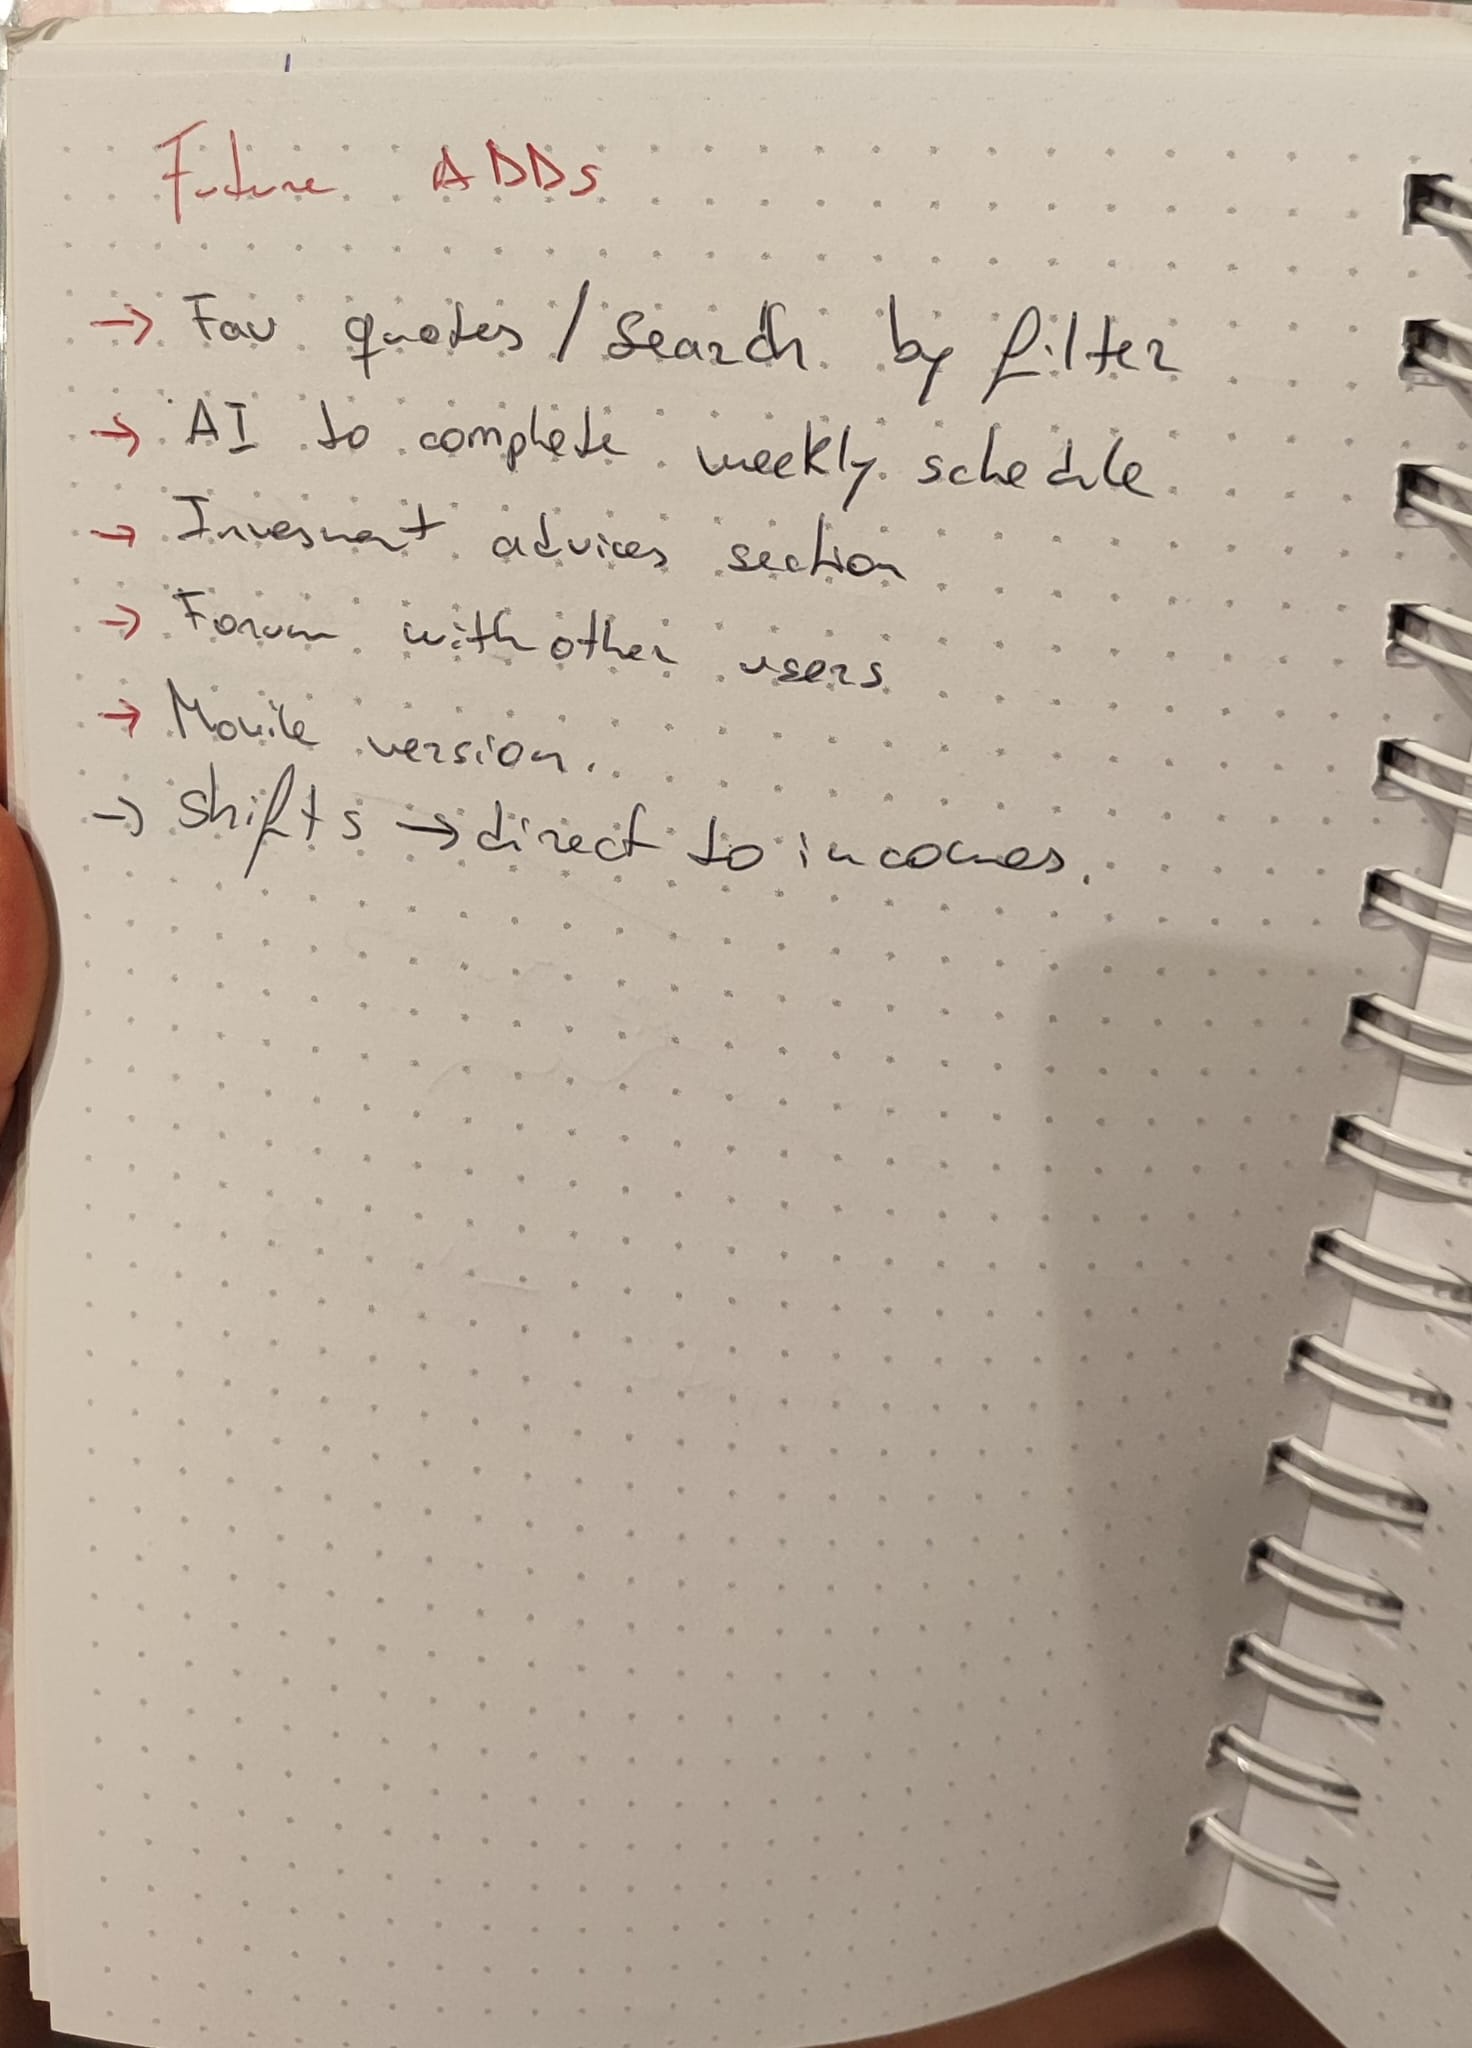 Future ADDs
→ Fav quotes / Search by filter
→ AI to complete weekly schedule
→ Invesment advices section
→ Forum with other users
→ Movile version.
→ Shifts → direct to incomes.